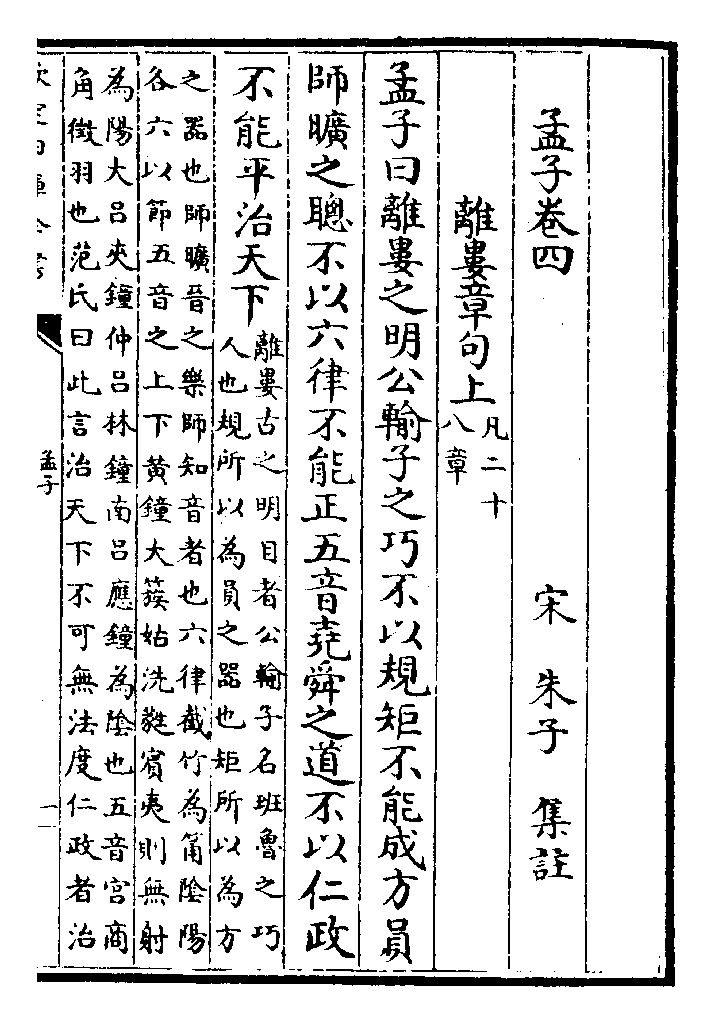 孟子卷四　宋　朱子　集註
離婁章句上
凡二十
八章
孟子曰離婁之明公輸子之巧不以規矩不能成方員
師曠之聰不以六律不能正五音堯舜之道不以仁政
不能平治天下
離婁古之明目者公輸子名班魯之巧
人也規所以為員之器也矩所以為方
之器也師曠晉之樂師知音者也六律截竹為筩陰陽
各六以節五音之上下黃鐘大蔟姑洗蕤賓夷則無射
為陽大呂夾鐘仲呂林鐘南呂應鐘為陰也五音宮商
角徵羽也范氏曰此言治天下不可無法度仁政者治
欽定四庫全書
孟子
一